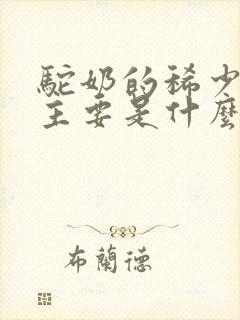 駝奶的稀少
主要是什麼
布蘭德